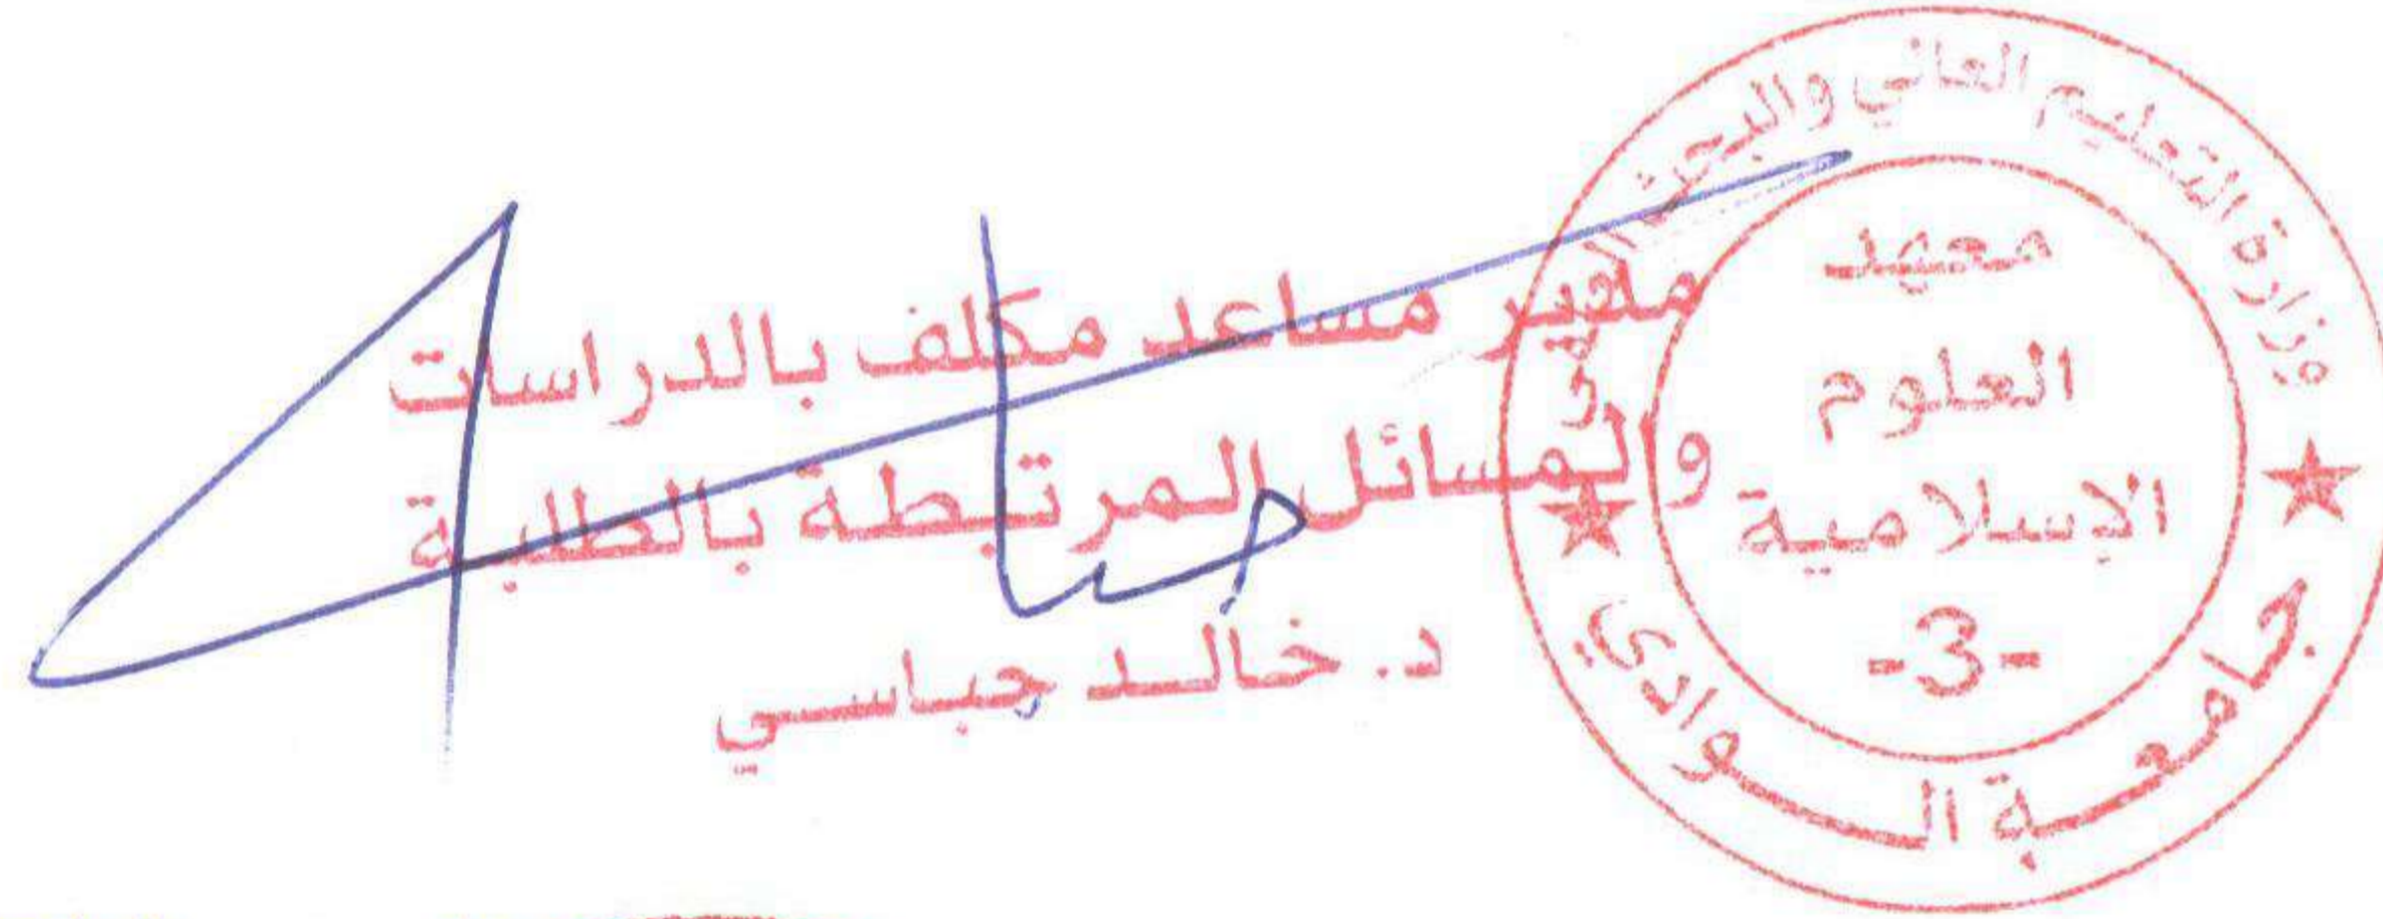 وزارة التعليم العالي والبحث
معهد
العلوم
الإسلامية
-3-
جامعة الوادي
مدير مساعد مكلف بالدراسات
والمسائل المرتبطة بالطلبة
د. خالد حباسي